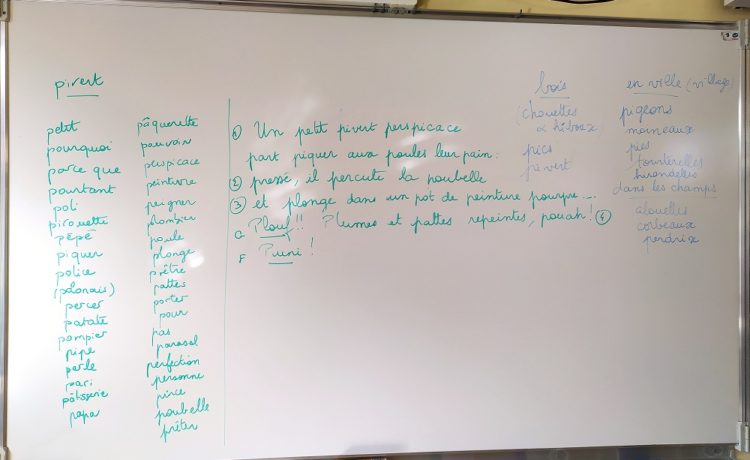 pivert
petit
pourquoi
parce que
pourtant
poli
pirouette
pépé
piquer
police
(polonais)
percer
patate
pompier
pipe
perle
pari
pâtisserie
papa
pâquerette
pouvoir
perspicace
peinture
peigner
plombier
poule
plonge
prêtre
pattes
porter
pour
pas
parasol
perfection
personne
pince
poubelle
prêter
① Un petit pivert perspicace
part piquer aux poules leur pain.
② pressé, il percute la poubelle
③ et plonge dans un pot de peinture pourpre...
G Plouf!! Plumes et pattes repeintes, pouah! ④
F Puni!
bois
(chouettes
& hiboux
pics
pivert
en ville (village)
pigeons
moineaux
pies
tourterelles
hirondelles
dans les champs
alouettes
corbeaux
perdrix